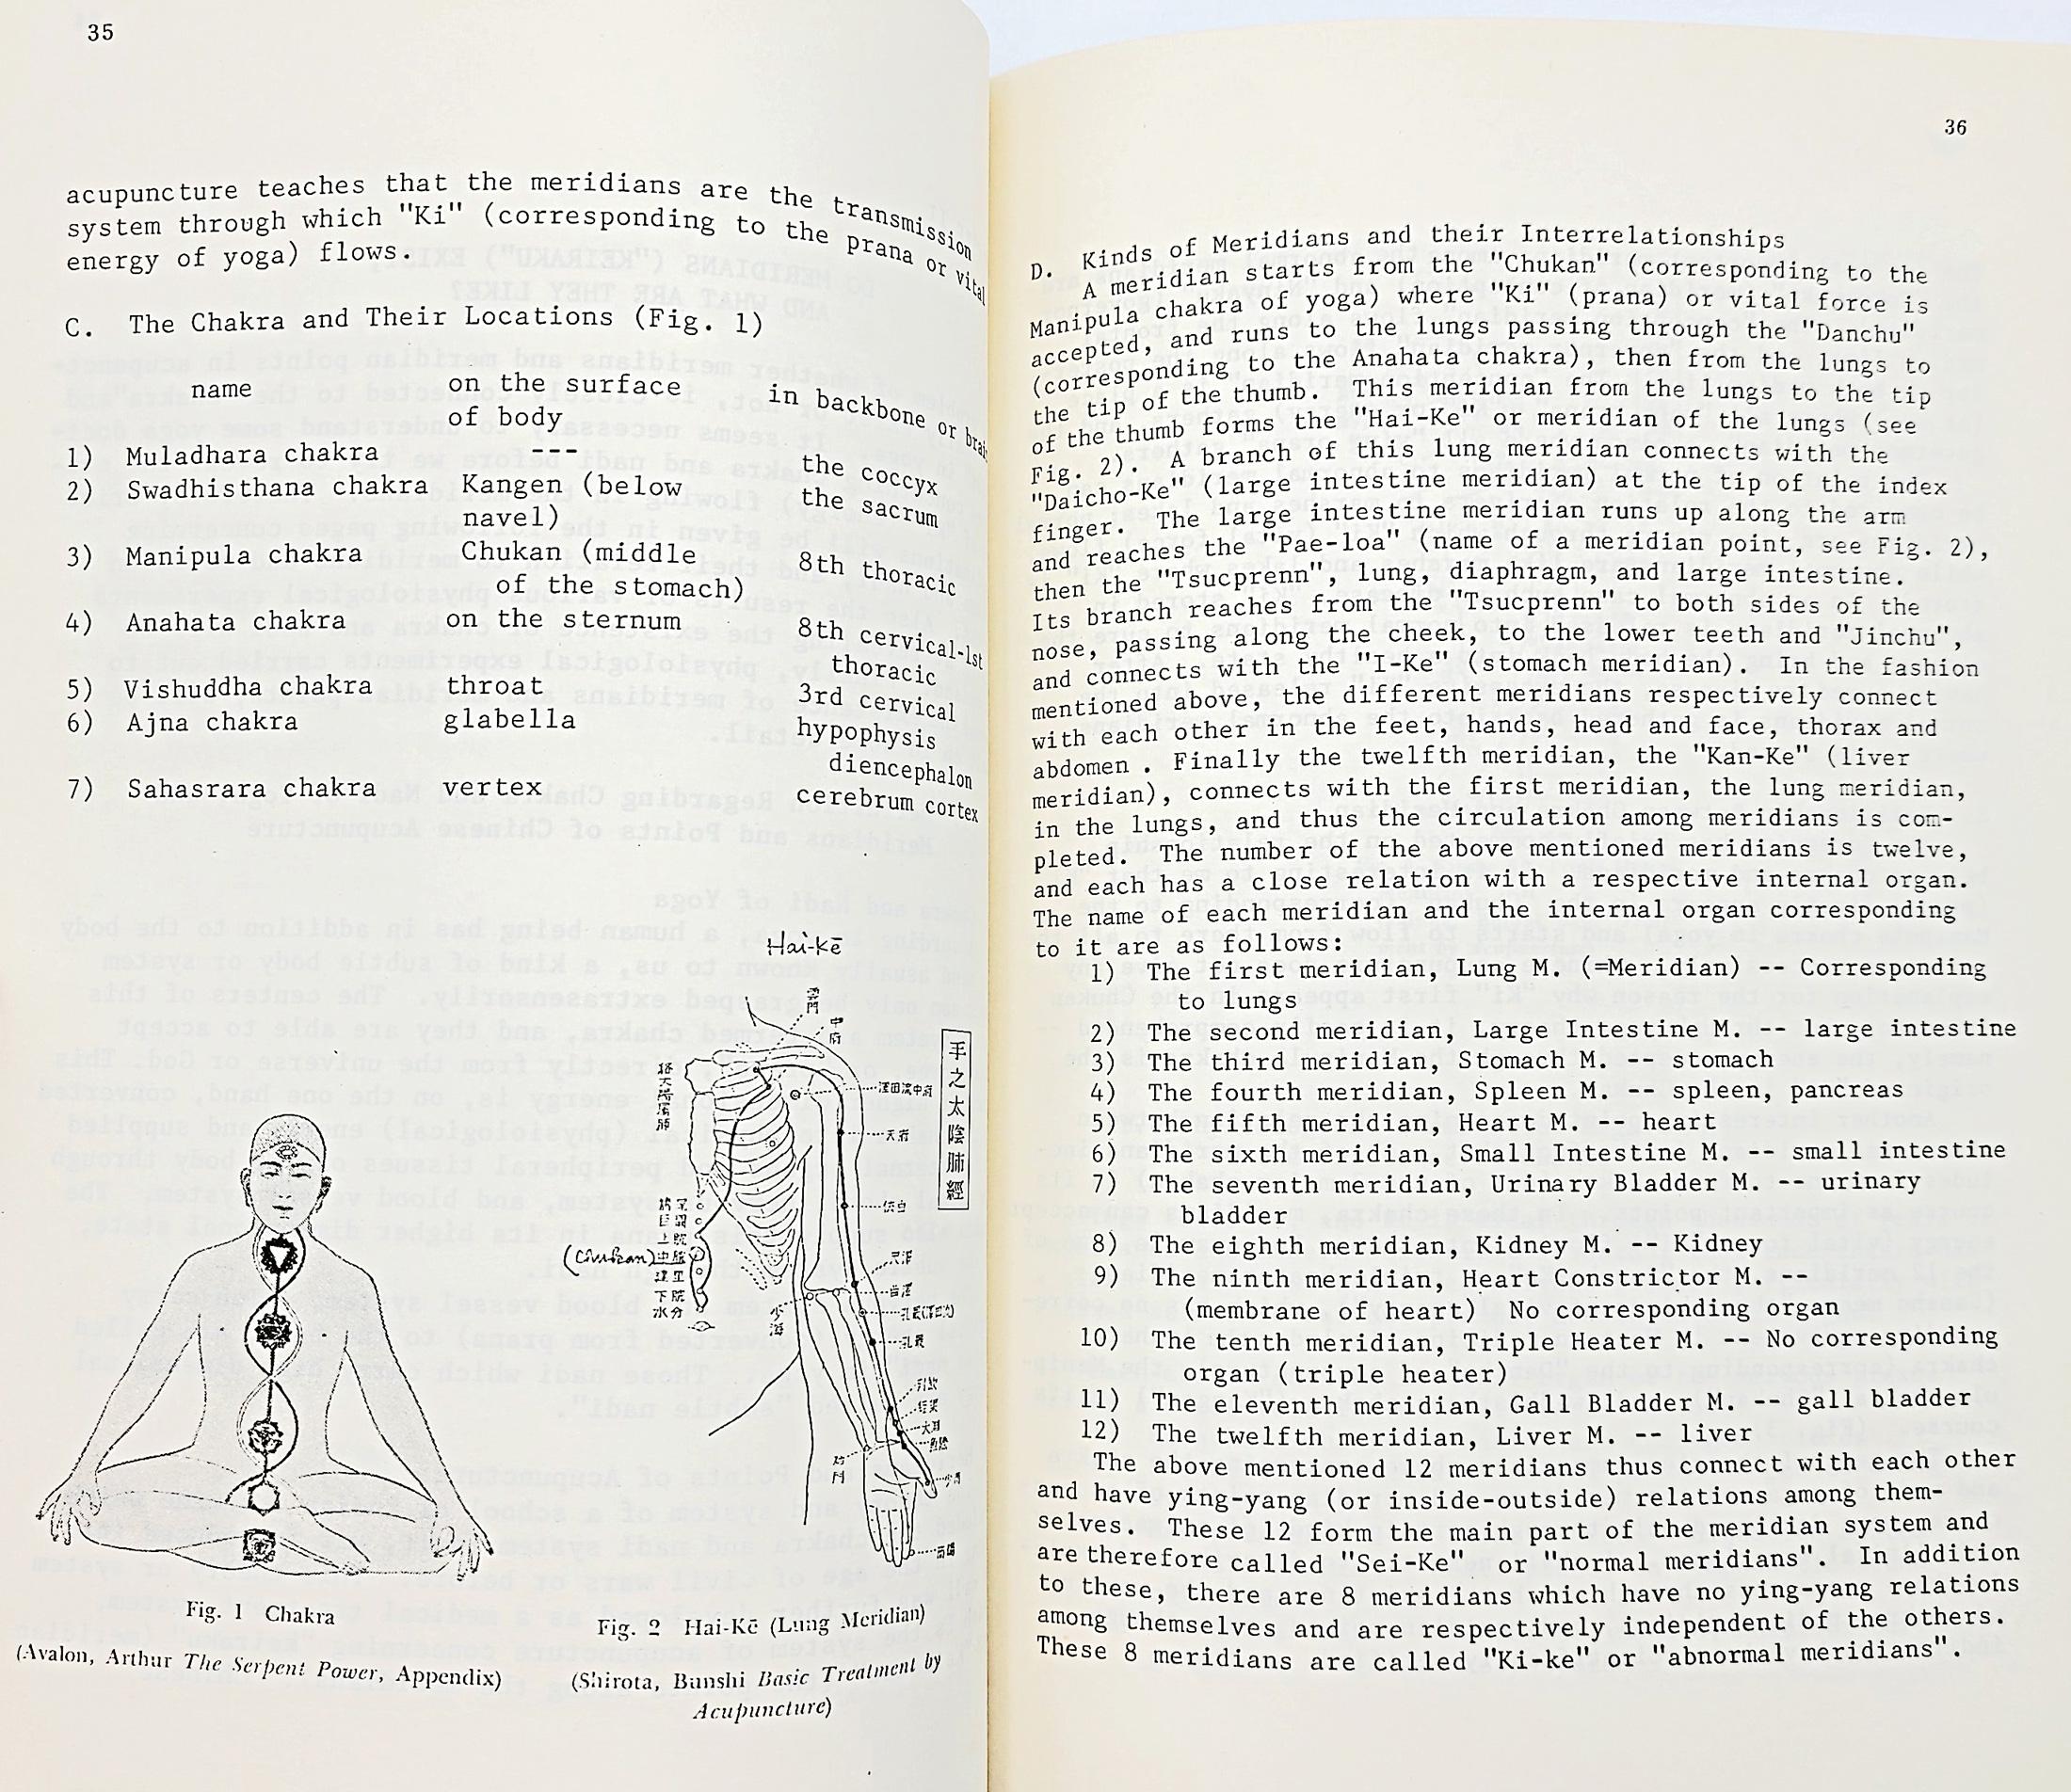 35
acupuncture teaches that the meridians are the transmission
system through which "Ki" (corresponding to the prana or vital
energy of yoga) flows.
C. The Chakra and Their Locations (Fig. 1)
name on the surface in backbone or brai
of body
1) Muladhara chakra --- the coccyx
2) Swadhisthana chakra Kangen (below the sacrum
navel)
3) Manipula chakra Chukan (middle 8th thoracic
of the stomach)
4) Anahata chakra on the sternum 8th cervical-1st
thoracic
5) Vishuddha chakra throat 3rd cervical
6) Ajna chakra glabella hypophysis
diencephalon
7) Sahasrara chakra vertex cerebrum cortex
Hai-kē
雲門
中府
手之太陰肺經
天府
(Chukan)
少海
孔最
Fig. 1 Chakra
(Avalon, Arthur The Serpent Power, Appendix)
Fig. 2 Hai-Kē (Lung Meridian)
(Shirota, Bunshi Basic Treatment by
Acupuncture)
36
D. Kinds of Meridians and their Interrelationships
A meridian starts from the "Chukan" (corresponding to the
Manipula chakra of yoga) where "Ki" (prana) or vital force is
accepted, and runs to the lungs passing through the "Danchu"
(corresponding to the Anahata chakra), then from the lungs to
the tip of the thumb. This meridian from the lungs to the tip
of the thumb forms the "Hai-Ke" or meridian of the lungs (see
Fig. 2). A branch of this lung meridian connects with the
"Daicho-Ke" (large intestine meridian) at the tip of the index
finger. The large intestine meridian runs up along the arm
and reaches the "Pae-loa" (name of a meridian point, see Fig. 2),
then the "Tsucprenn", lung, diaphragm, and large intestine.
Its branch reaches from the "Tsucprenn" to both sides of the
nose, passing along the cheek, to the lower teeth and "Jinchu",
and connects with the "I-Ke" (stomach meridian). In the fashion
mentioned above, the different meridians respectively connect
with each other in the feet, hands, head and face, thorax and
abdomen . Finally the twelfth meridian, the "Kan-Ke" (liver
meridian), connects with the first meridian, the lung meridian,
in the lungs, and thus the circulation among meridians is com-
pleted. The number of the above mentioned meridians is twelve,
and each has a close relation with a respective internal organ.
The name of each meridian and the internal organ corresponding
to it are as follows:
1) The first meridian, Lung M. (=Meridian) -- Corresponding
to lungs
2) The second meridian, Large Intestine M. -- large intestine
3) The third meridian, Stomach M. -- stomach
4) The fourth meridian, Spleen M. -- spleen, pancreas
5) The fifth meridian, Heart M. -- heart
6) The sixth meridian, Small Intestine M. -- small intestine
7) The seventh meridian, Urinary Bladder M. -- urinary
bladder
8) The eighth meridian, Kidney M. -- Kidney
9) The ninth meridian, Heart Constrictor M. --
(membrane of heart) No corresponding organ
10) The tenth meridian, Triple Heater M. -- No corresponding
organ (triple heater)
11) The eleventh meridian, Gall Bladder M. -- gall bladder
12) The twelfth meridian, Liver M. -- liver
The above mentioned 12 meridians thus connect with each other
and have ying-yang (or inside-outside) relations among them-
selves. These 12 form the main part of the meridian system and
are therefore called "Sei-Ke" or "normal meridians". In addition
to these, there are 8 meridians which have no ying-yang relations
among themselves and are respectively independent of the others.
These 8 meridians are called "Ki-ke" or "abnormal meridians".